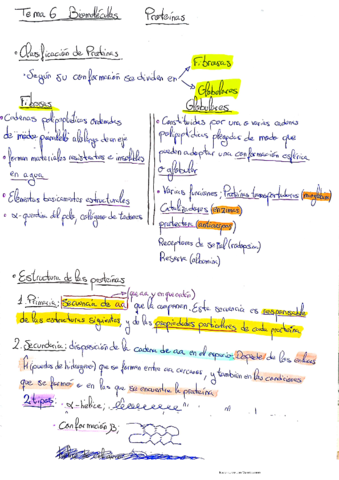 Tema 6 Biomoléculas Proteínas
· Clasificación de Proteínas
· Según su conformación se dividen en
Fibrosas
Globulares
Fibrosas
· Cadenas polipeptídicas ordenadas
de modo paralelo a lo largo de un eje
· forman materiales resistentes e insolubles
en agua
· Elementos básicamente estructurales
· α-queratina del pelo, colágeno de tendones
Globulares
· Constituidas por una o varias cadenas
polipeptídicas plegadas de modo que
pueden adoptar una conformación esférica
o globular
· Varias funciones: Proteínas transportadoras (mioglobina)
Catalizadoras (enzimas)
protectora (anticuerpos)
Receptores de señal (rodopsina)
Reserva (albúmina)
· Estructura de las proteínas
(que aa y en que orden)
1. Primaria: Secuencia de aa que la componen. Esta secuencia es responsable
de las estructuras siguientes y de las propiedades particulares de cada proteína
2. Secundaria: disposición de la cadena de aa en el espacio. Depende de los enlaces
H (puentes de hidrógeno) que se forma entre aa cercanos, y también en las condiciones
que se formó o en las que se encuentre la proteína
2 tipos: · α-hélice:
· Conformación β: